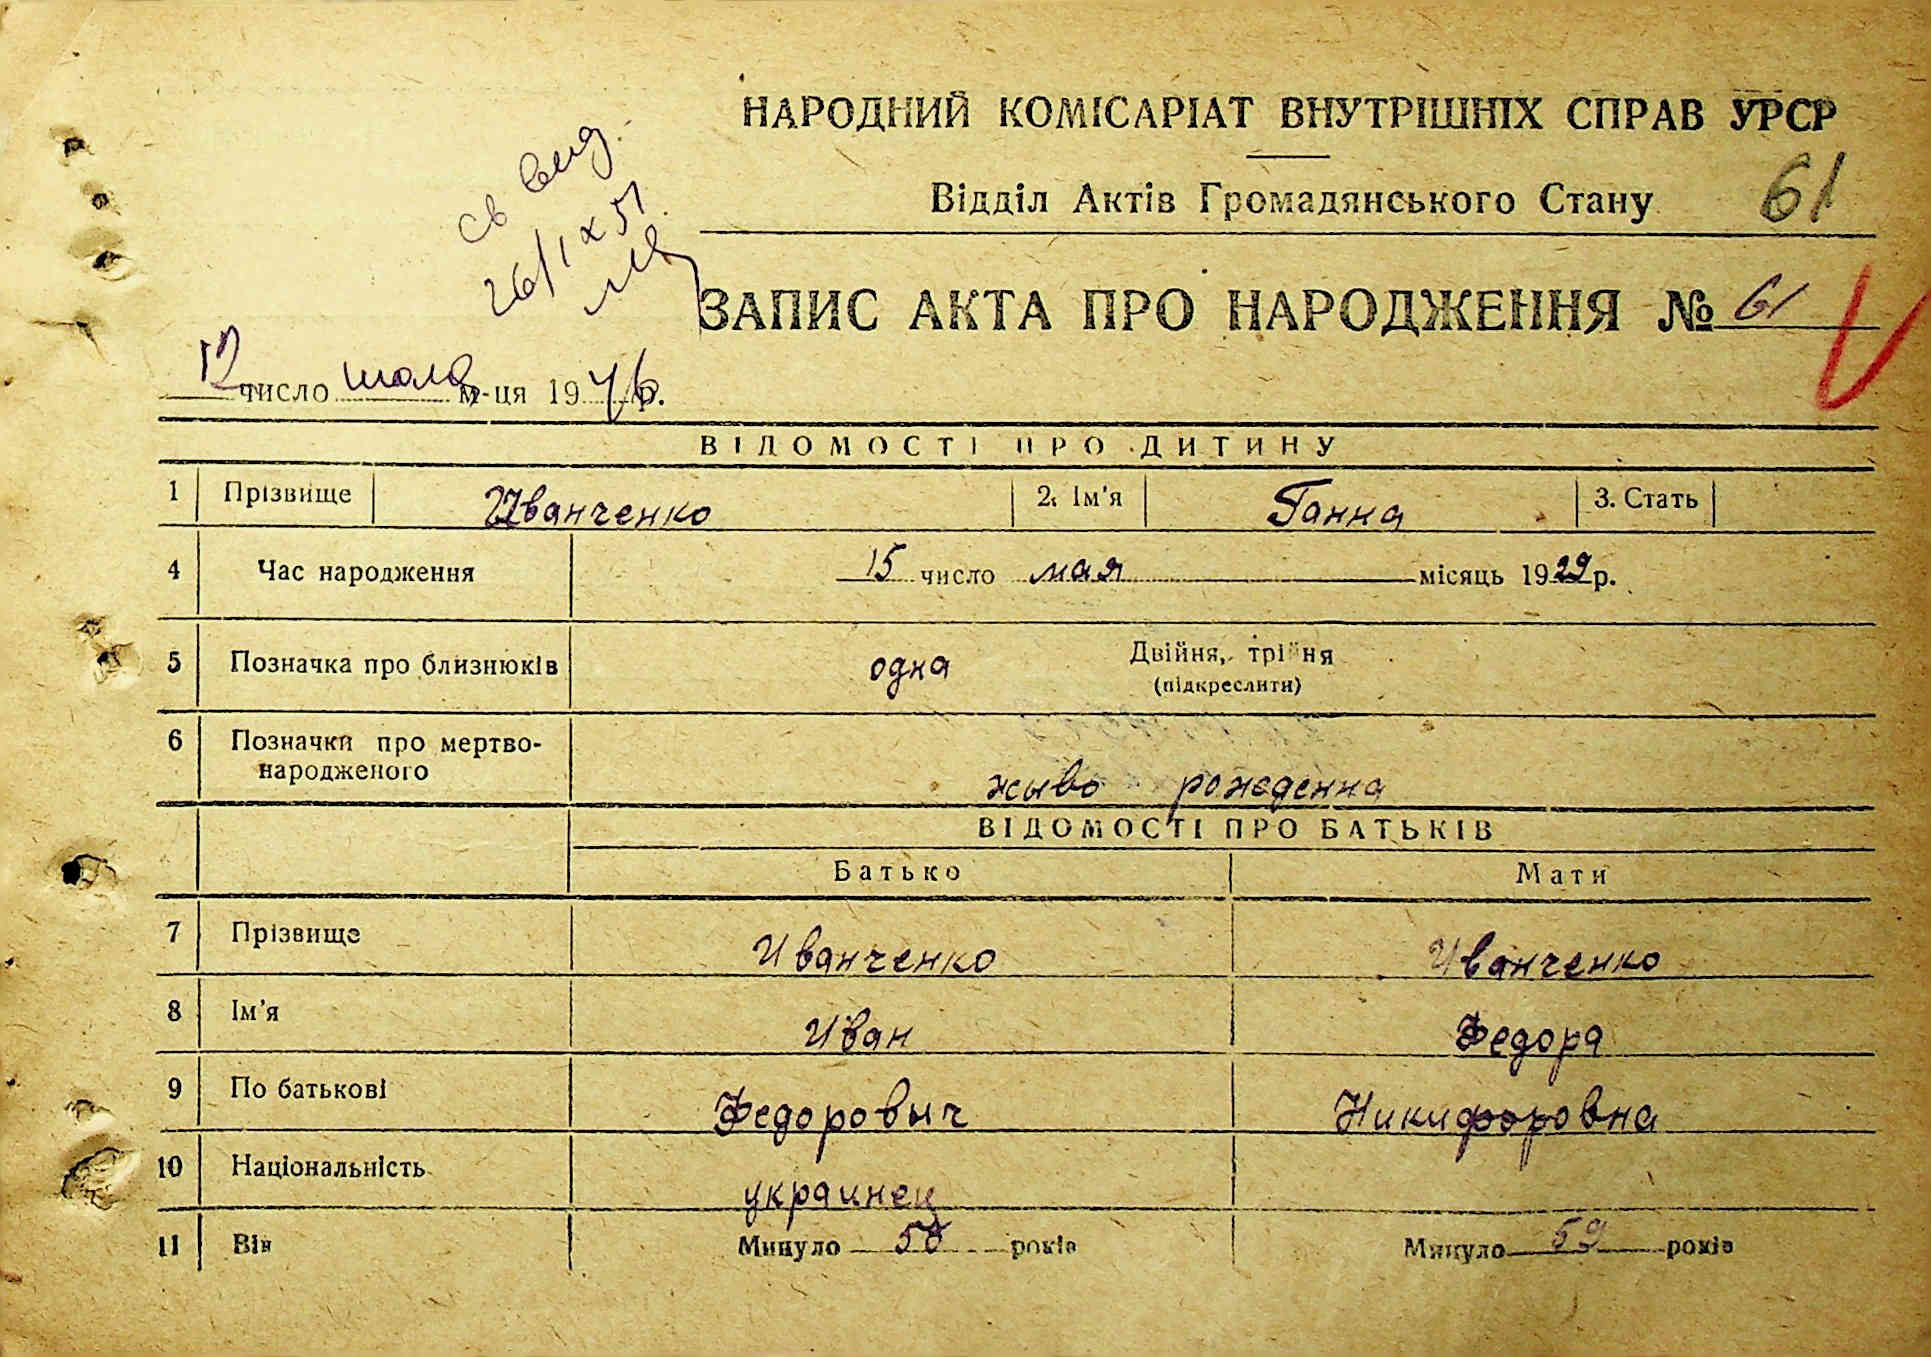 НАРОДНИЙ КОМІСАРІАТ ВНУТРІШНІХ СПРАВ УРСР
Відділ Актів Громадянського Стану 61
св выд.
26/IX 51
ЗАПИС АКТА ПРО НАРОДЖЕННЯ № 61
12 число июля м-ця 1946 р.
ВІДОМОСТІ ПРО ДИТИНУ
1 Прізвище Иванченко 2. Ім'я Ганна 3. Стать
4 Час народження 15 число мая місяць 1929 р.
5 Позначка про близнюків одна Двійня, трійня
(підкреслити)
6 Позначки про мертво-
народженого жыво рожденна
ВІДОМОСТІ ПРО БАТЬКІВ
Батько Мати
7 Прізвище Иванченко Иванченко
8 Ім'я Иван Федора
9 По батькові Федоровыч Никифоровна
10 Національність украинец
11 Вік Минуло 58 років Минуло 59 років